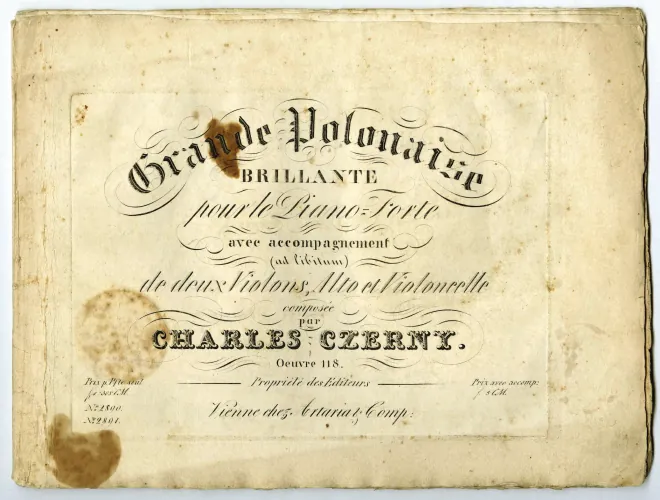 Grande Polonaise
BRILLANTE
pour le Piano=Forte
avec accompagnement
(ad libitum)
de deux Violons, Alto et Violoncelle
composée
par
CHARLES CZERNY.
Oeuvre 118.
Prix p. Pfte seul
Propriété des Editeurs
Prix avec accomp:
Vienne chez Artaria & Comp: